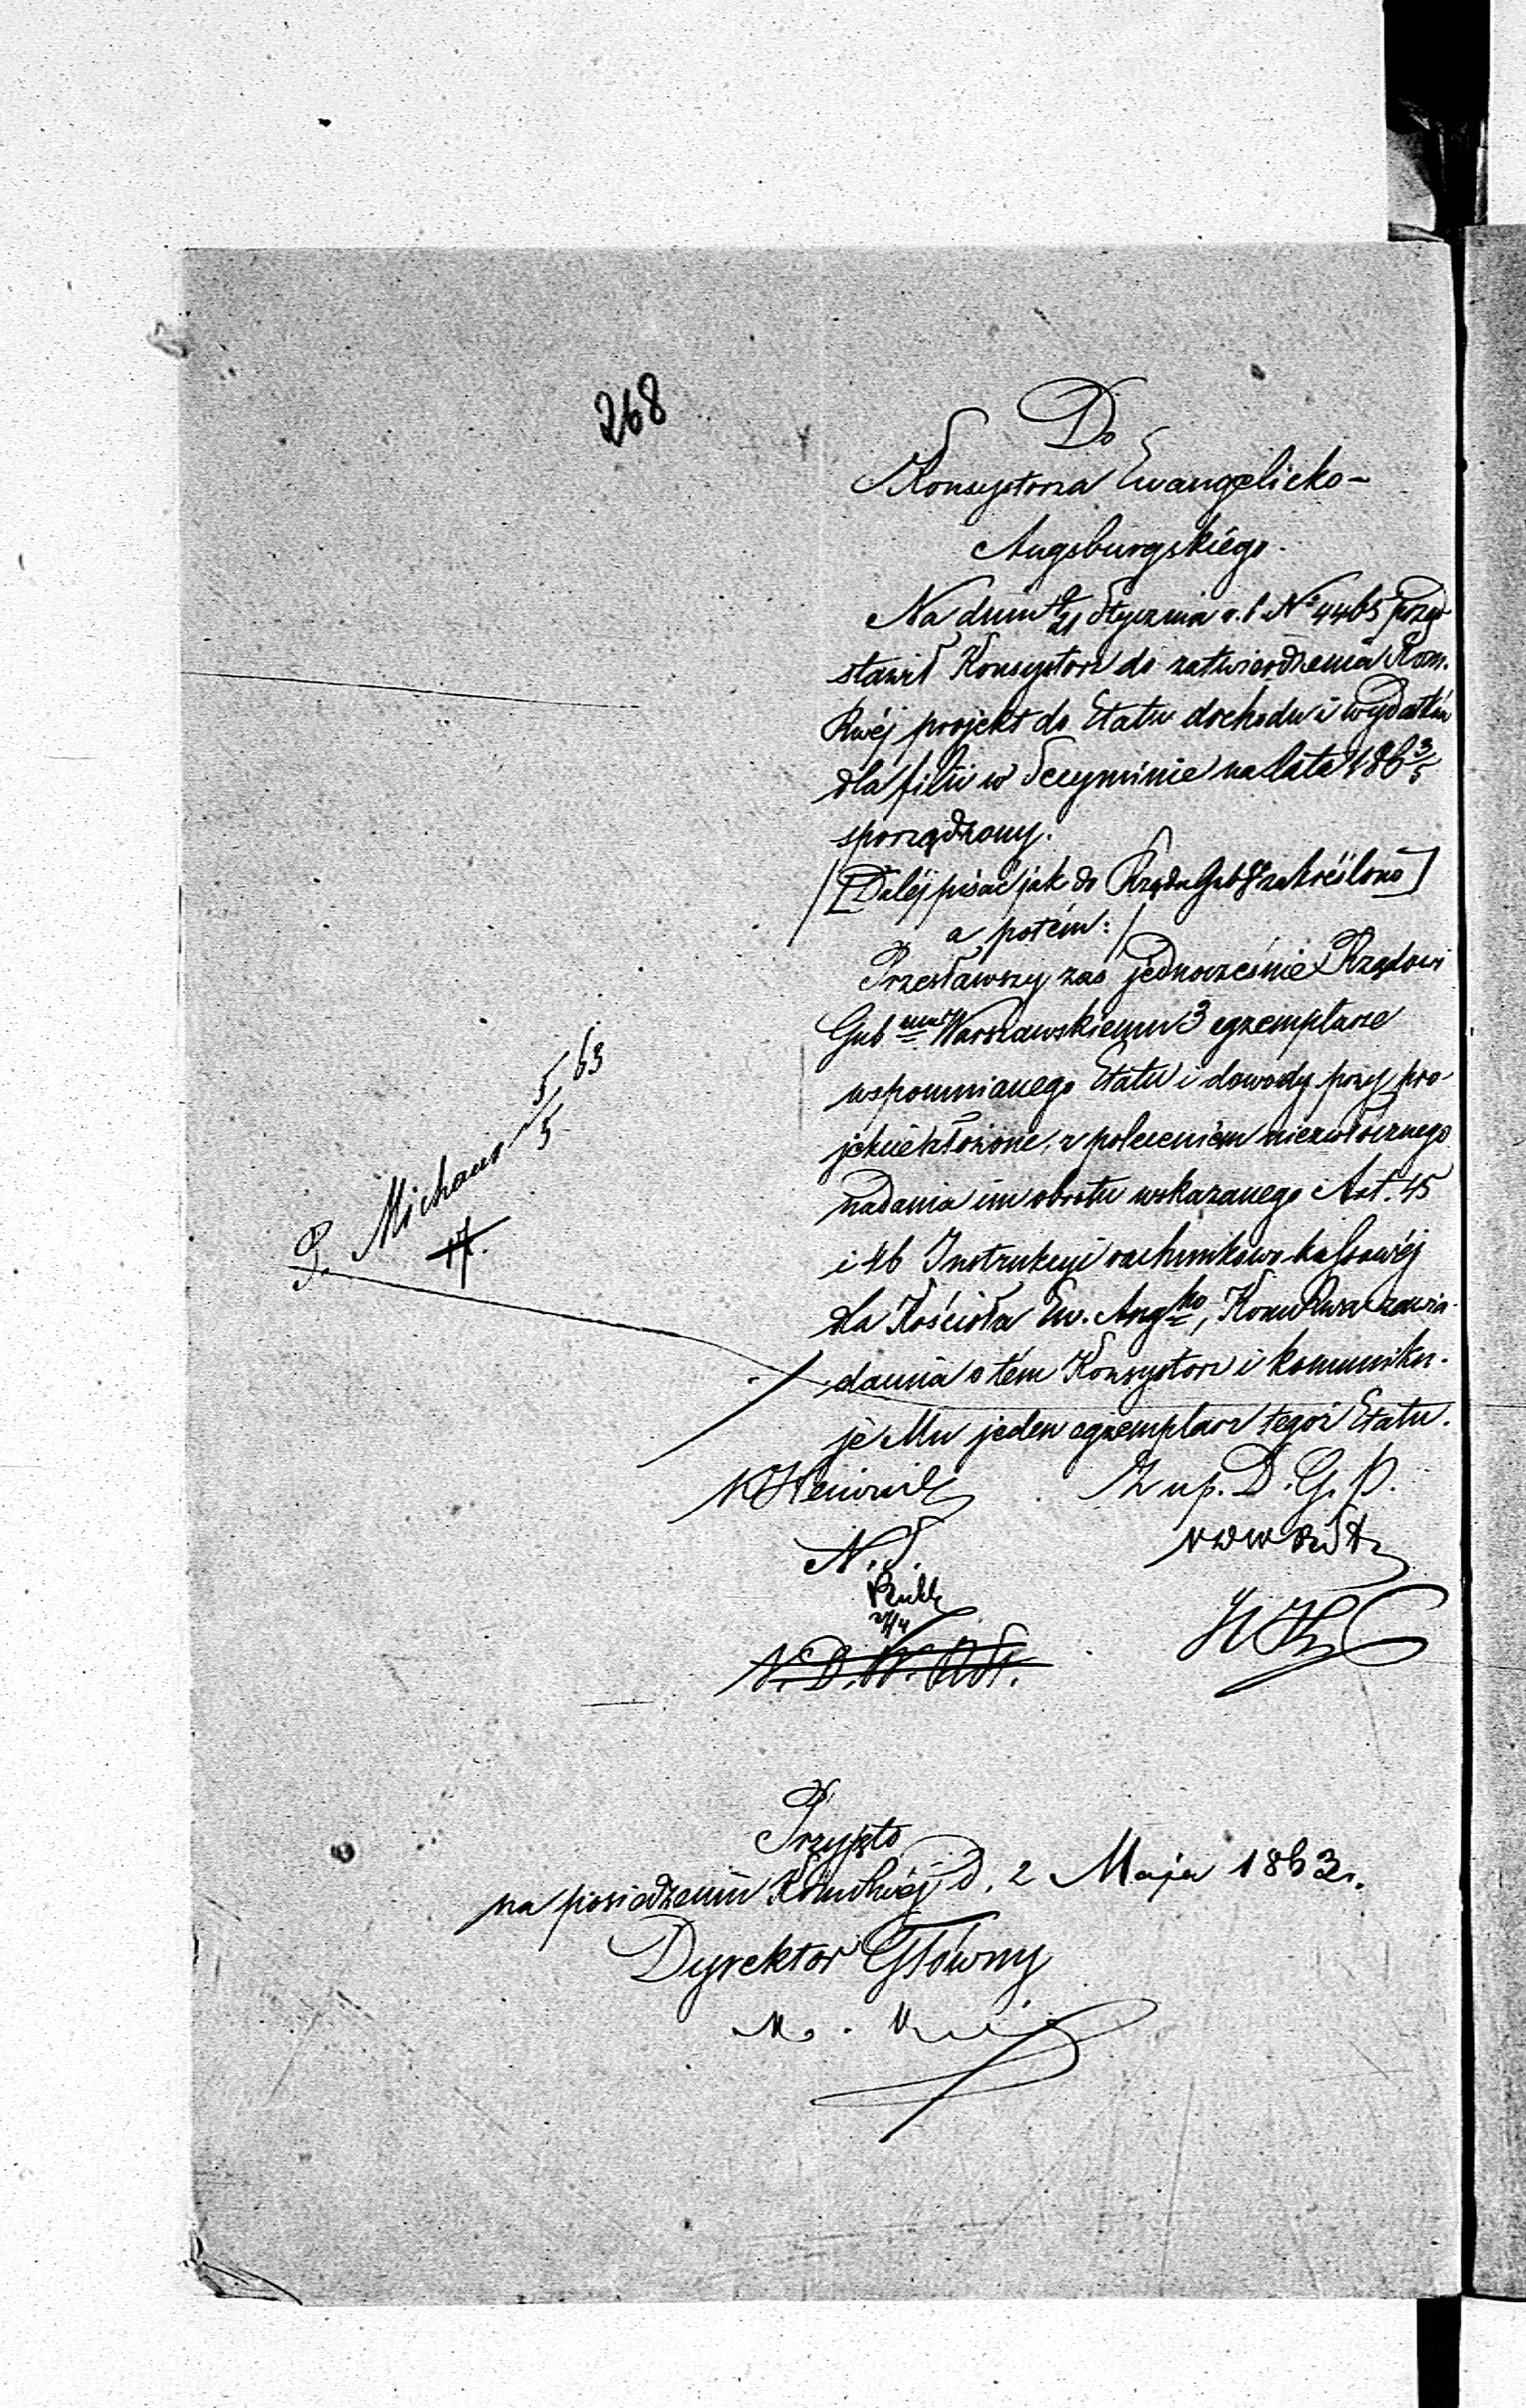 268
Do
Konsystorza Ewangelicko-
Augsburgskiego.
Na dniu 9/21 Stycznia r. b. No 4465 przed
stawił Konsystorz do zatwierdzenia Kom.
Rwéj projekt do Etatu dochodu i wydatków
dla filii w Secyminie na lata 186 3/5
sporządzony.
[Daléj pisać jak do Rządu Gub zakréślono]
a potém:
Przesławszy zaś jednocześnie Rządowi
Gub emu Warszawskiemu 3 egzemplarze
wspomnianego Etatu i dowody przy pro-
jekcie złożone, z poleceniem niezwłocznego
nadania im obrotu wskazanego Art. 45
i 46 Instrukcyi rachunkowo-kassowéj
dla Kościoła Ew. Aug ko, Kom Rwa zawia-
damia o tém Konsystorz i komuniku-
je Mu jeden egzemplarz tegoż Etatu.
P. Michaux 5/5 63
17.
Z up. D. G. P.
N. S.
27/4
N. D. W. RSt.
Przyjęto
na posiedzeniu Kom Rwéj d. 2 Maja 1863 r.
Dyrektor Główny